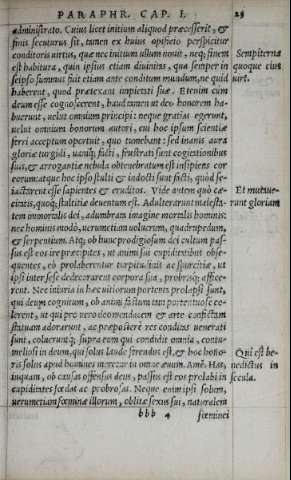 PARAPHR. CAP. I. 25
administrato. Cuius licet initium aliquod præcesserit, &
finis secuturus sit, tamen ex huius opificio perspicitur
conditoris uirtus, quæ nec initium ullum nouit, neq; finem
est habitura, quin ipsius etiam diuinitas, qua semper in
seipso summus fuit etiam ante conditum mundum, ne quid
haberent, quod prætexant impietati suæ. Etenim cum
deum esse cognoscerent, haud tamen ut deo honorem ha-
buerunt, uelut omnium principi: neque gratias egerunt,
uelut omnium bonorum autori, cui hoc ipsum scientiæ
ferri acceptum oportuit, quo tumebant: sed inanis aura
gloriæ turgidi, uaniq; facti, frustrati sunt cogitationibus
suis, & arrogantiæ nebula obtenebratum est insipiens cor
eorum: atque hoc ipso stulti & indocti sunt facti, quod se
iactarent esse sapientes & eruditos. Vide autem quò cæ-
citatis, quoq; stultitiæ deuentum est. Adulterarunt maiesta-
tem immortalis dei, adumbrata imagine mortalis hominis:
nec hominis modò, uerumetiam uolucrum, quadrupedum,
& serpentium. Atq; ob hunc prodigiosum dei cultum pas-
sus est eos ire præcipites, ut animi sui cupiditatibus obse-
quentes, eò prolaberentur turpitudinis ac spurcitiæ, ut
ipsi inter sese dedecorarent corpora sua, probrisq; affice-
rent. Nec iniuria in hæc uitiorum portenta prolapsi sunt,
qui deum cognitum, ob animi fastum tam portentose co-
lerent, ut qui pro uero deo mendacem & arte confictam
statuam adorarunt, ac præpostere res conditas uenerati
sunt, coluerunt q; supra eum qui condidit omnia, contu-
meliosi in deum, qui solus laude ferendus est, & hoc hono-
ris solus apud homines meretur in omne æuum. Amē. Has,
inquam, ob causas offensus deus, passus est eos prolabi in
cupiditates fœdas ac probrosas. Neque enim ipsi solum,
uerumetiam fœminæ illorum, oblitæ sexus sui, naturalem
bbb 4 fœminei
Sempiterna
quoque eius
uirt.
Et mutaue-
runt gloriam
Qui est be-
nedictus in
secula.